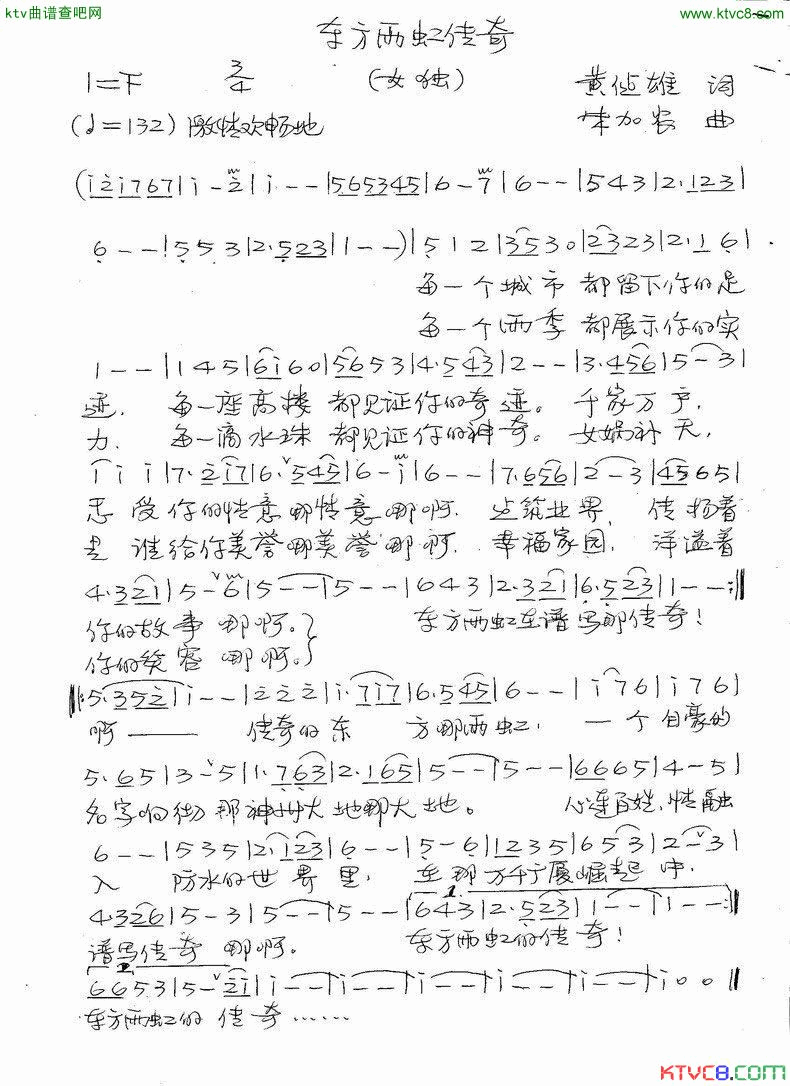 ktv曲谱查吧网
www.ktvc8.com
东方雨虹传奇
1=F 3/4 (女独) 黄 雄 词
(♩=132) 激情欢畅地 朱加农 曲
(i̇ 2̇ i̇ 7 6 7 | i̇ - 2̇ | i̇ - - | 5 6 5 3 4 5 | 6 - 7 | 6 - - | 5 4 3 | 2· 1 2 3 |
6 - - | 5 5 3 | 2· 5 2 3 | 1 - - ) | 5 1 2 | 3 5 3 0 | 2 3 2 3 | 2· 1 6 |
每一个城市 都留下你的足
每一个雨季 都展示你的实
1 - - | 1 4 5 | 6 i̇ 6 0 | 5 6 5 3 | 4· 5 4 3 | 2 - - | 3· 4 5 6 | 5 - 3 |
迹, 每一座高楼 都见证你的奇迹。 千家万户,
力, 每一滴水珠 都见证你的神奇。 女娲补天,
i̇ i̇ i̇ | 7· 2̇ i̇ 7 | 6· 5 4 5 | 6 - i̇ | 6 - - | 7· 6 5 6 | 2 - 3 | 4 5 6 5 |
受你的情意哪情意哪啊, 建筑业界, 传扬着
是谁给你美誉哪美誉哪啊, 幸福家园, 洋溢着
4· 3 2 1 | 5 - 6 | 5 - - | 5 - - | 6 4 3 | 2· 3 2 1 | 6· 5 2 3 | 1 - - :||
你的故事哪啊。} 东方雨虹在谱写那传奇!
你的笑容哪啊。}
||: 5· 3 5 2̇ | i̇ - - | 2̇ 2̇ 2̇ | i̇· 7 i̇ 7 | 6· 5 4 5 | 6 - - | i̇ 7 6 | i̇ 7 6 |
啊—— 传奇的东 方哪雨虹, 一个自豪的
5· 6 5 | 3 - 5 | 1· 7 6 3 | 2· 1 6 5 | 5 - - | 5 - - | 6 6 6 5 | 4 - 5 |
名字响彻那神州大地哪大地。 心连百姓,情融
6 - - | 5 3 5 | 2· 1 2 3 | 6 - - | 5 - 6 | 1 2 3 5 | 6 5 3 | 2 - 3 |
入 防水的世界里, 在那万千广厦崛起中,
4· 3 2 6 | 5 - 3 | 5 - - | 5 - - | 1. 6 4 3 | 2· 5 2 3 | 1 - - | 1 - - :||
谱写传奇 哪啊。 东方雨虹的传奇!
2. 6 6 5 3 | 5 - 2̇ i̇ | i̇ - - | i̇ - - | i̇ - - | i̇ - - | i̇ - - | i̇ 0 0 ||
东方雨虹的 传奇……
KTVC8.COM